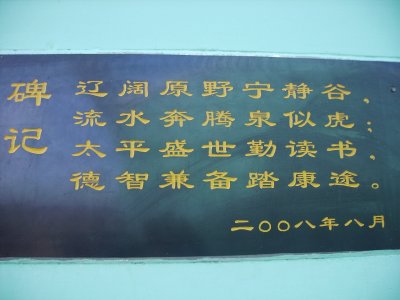 碑记
辽阔原野宁静谷，
流水奔腾泉似虎；
太平盛世勤读书，
德智兼备踏康途。
二〇〇八年八月